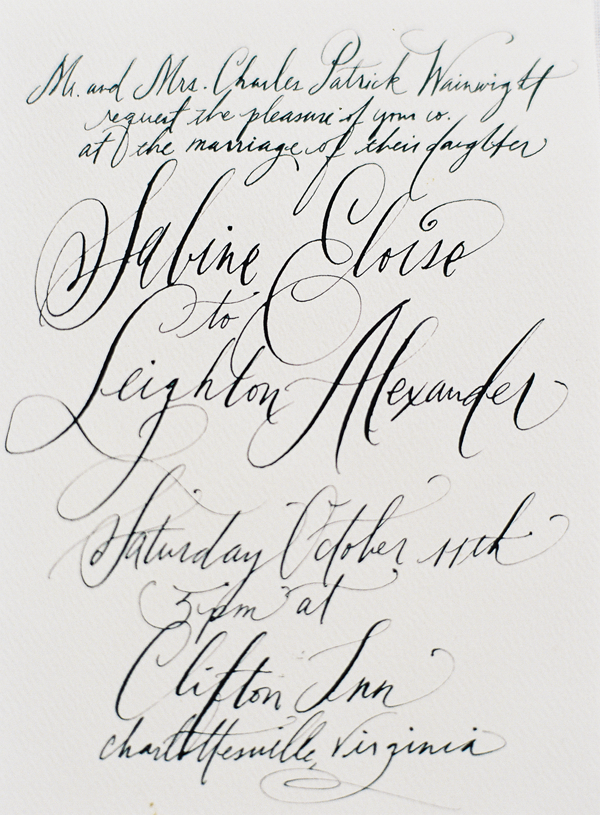 Mr. and Mrs. Charles Patrick Wainwright
request the pleasure of your co.
at the marriage of their daughter
Sabine Eloise
to
Leighton Alexander
Saturday October 11th
5pm at
Clifton Inn
charlottesville, Virginia